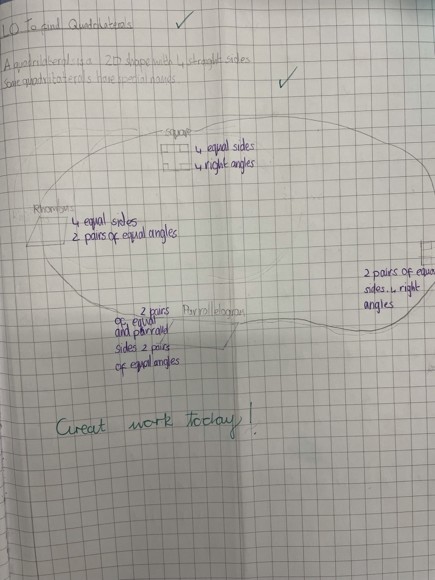 LO To find Quadrilaterals
A quadrilateral is a 2D shape with 4 straight sides
Some quadrilaterals have special names
Square
4 equal sides
4 right angles
Rhombus
4 equal sides
2 pairs of equal angles
2 pairs of equa
sides. 4 right
angles
Parrallelogram
2 pairs
of equal
and parralel
sides 2 pairs
of equal angles
Great work today!